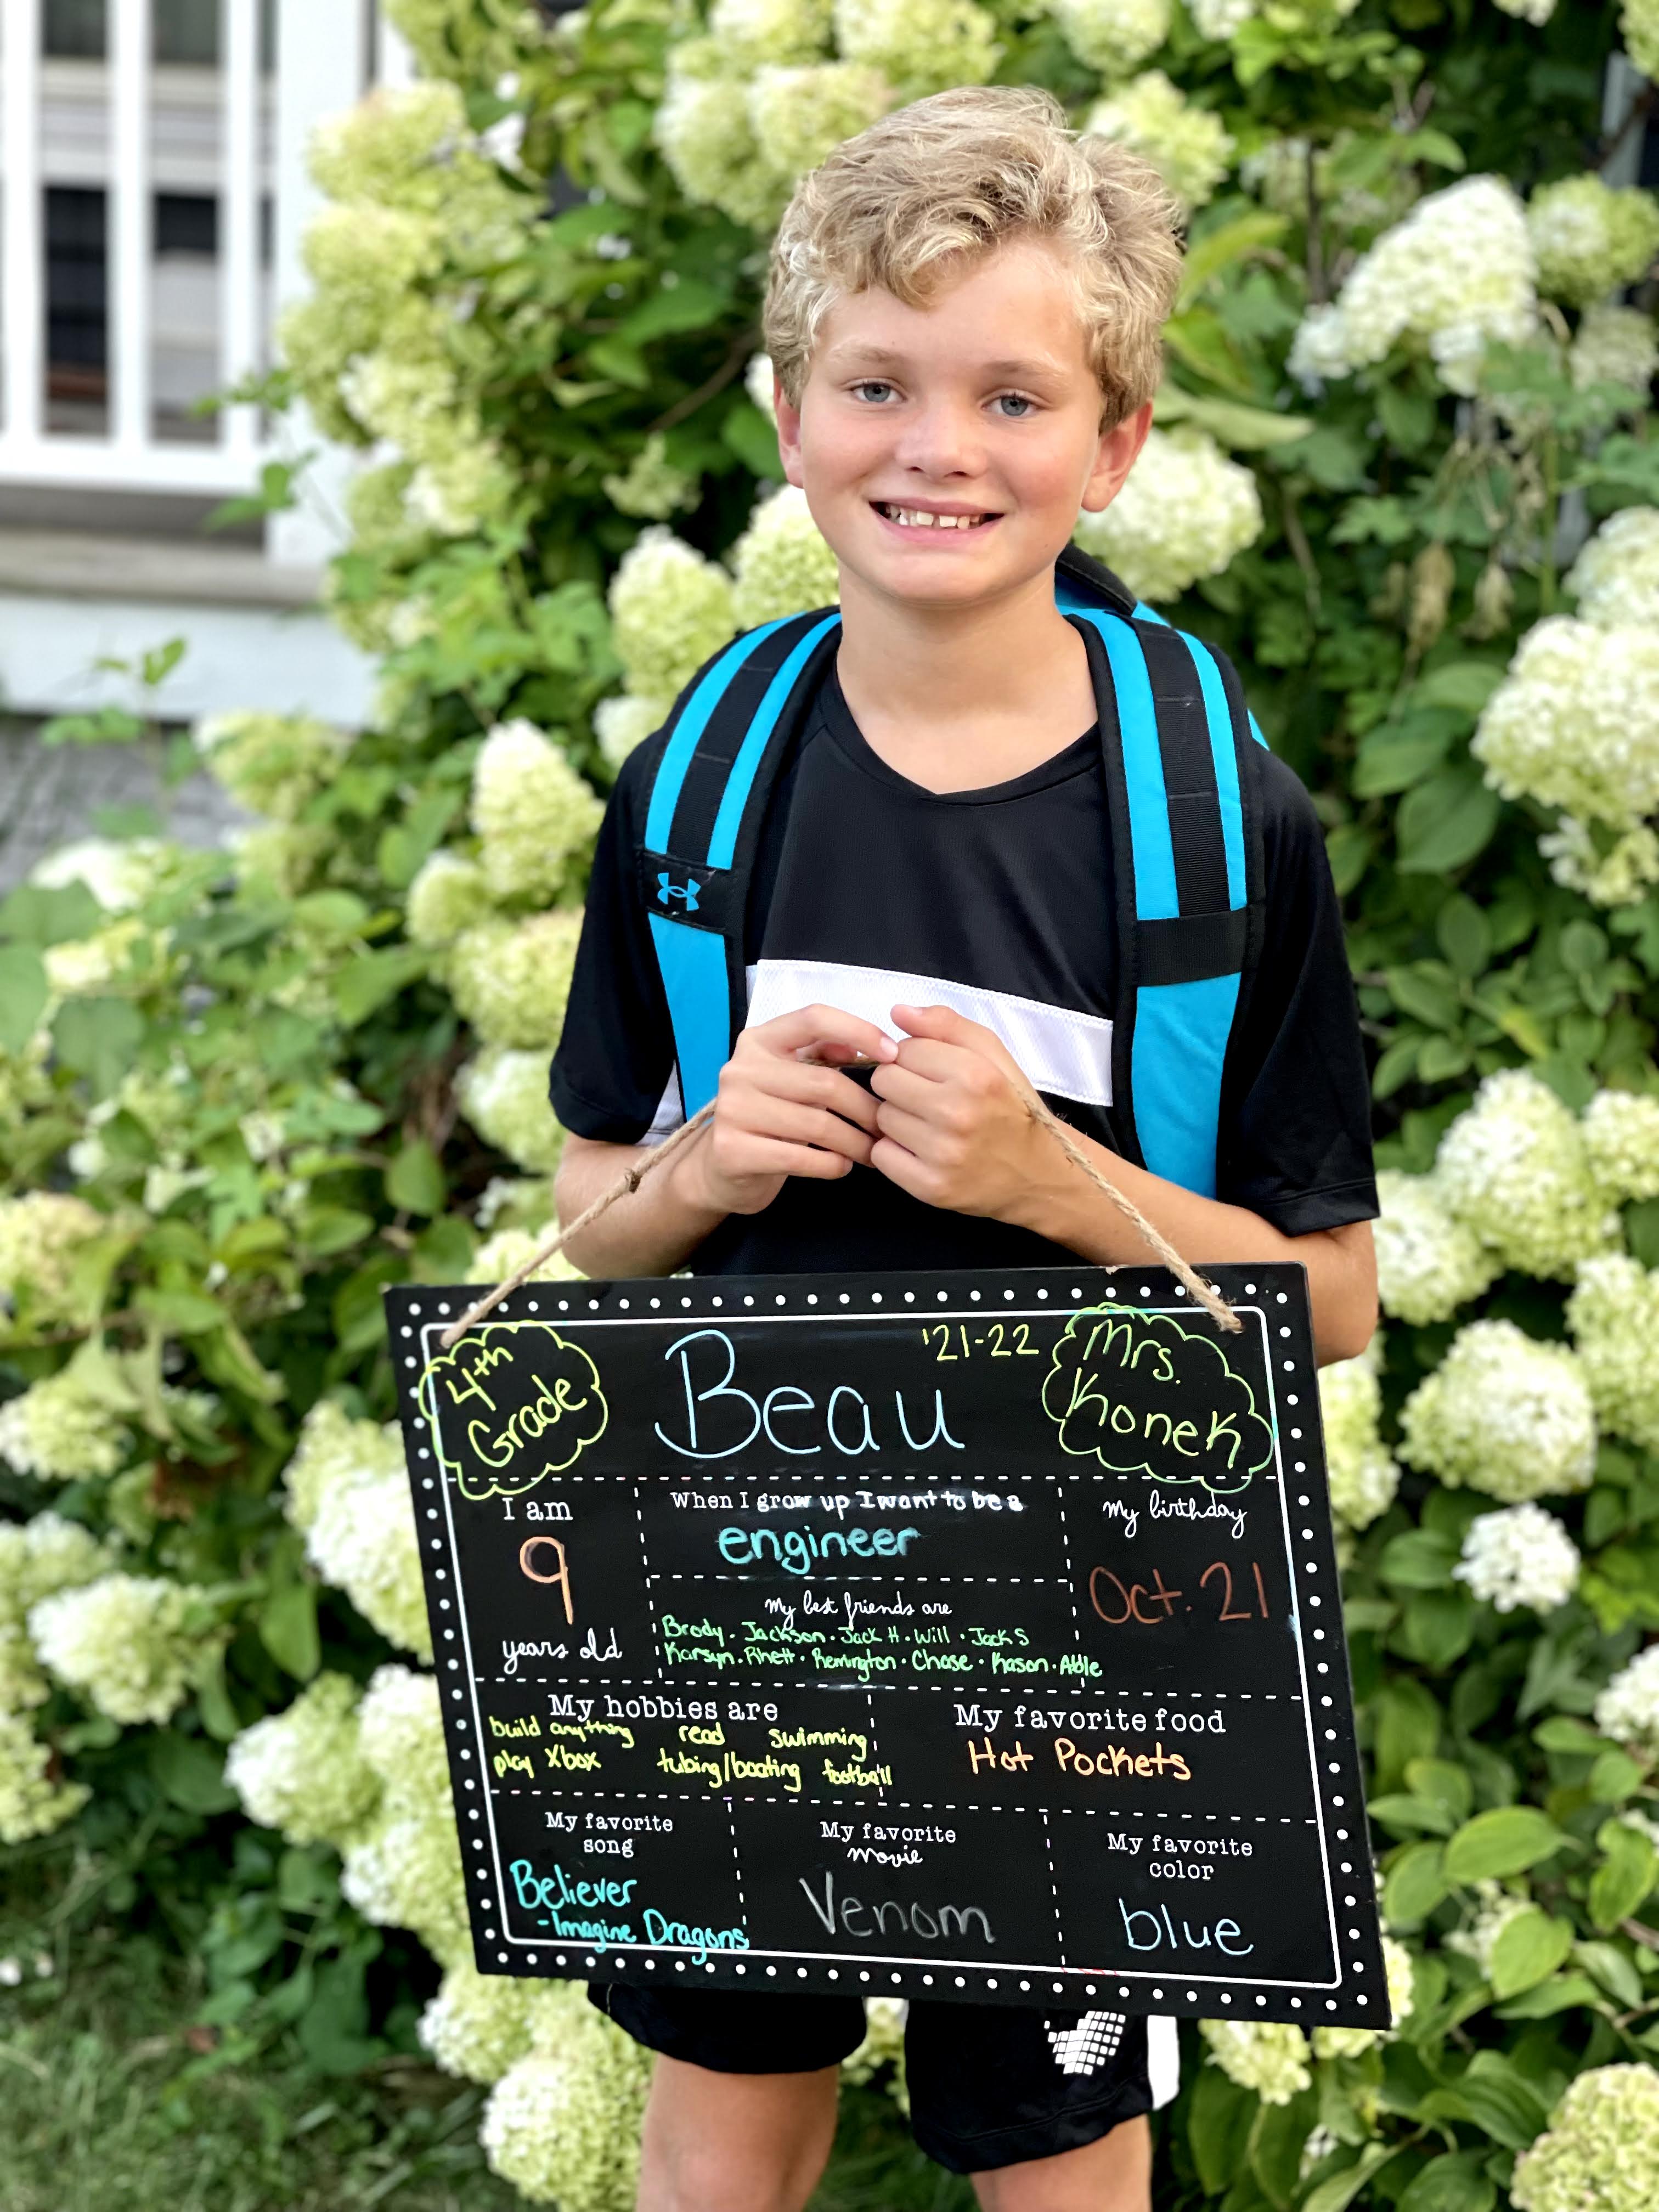 4th
Grade
Beau
'21-22
Mrs.
Konek
I am
9
years old
When I grow up I want to be a
engineer
My best friends are
Brody . Jackson . Jack H . Will . Jack S
Karsyn . Rhett . Remington . Chase . Kason . Able
My birthday
Oct. 21
My hobbies are
build anything read swimming
play Xbox tubing/boating football
My favorite food
Hot Pockets
My favorite
song
Believer
-Imagine Dragons
My favorite
movie
Venom
My favorite
color
blue